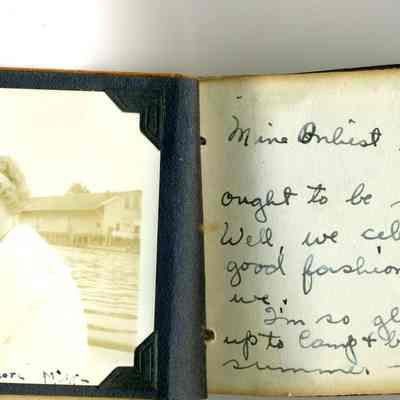 Mine
ought to be
Well, we cel
good fashion
we.
I'm so gl
up to Camp & b
summer. —